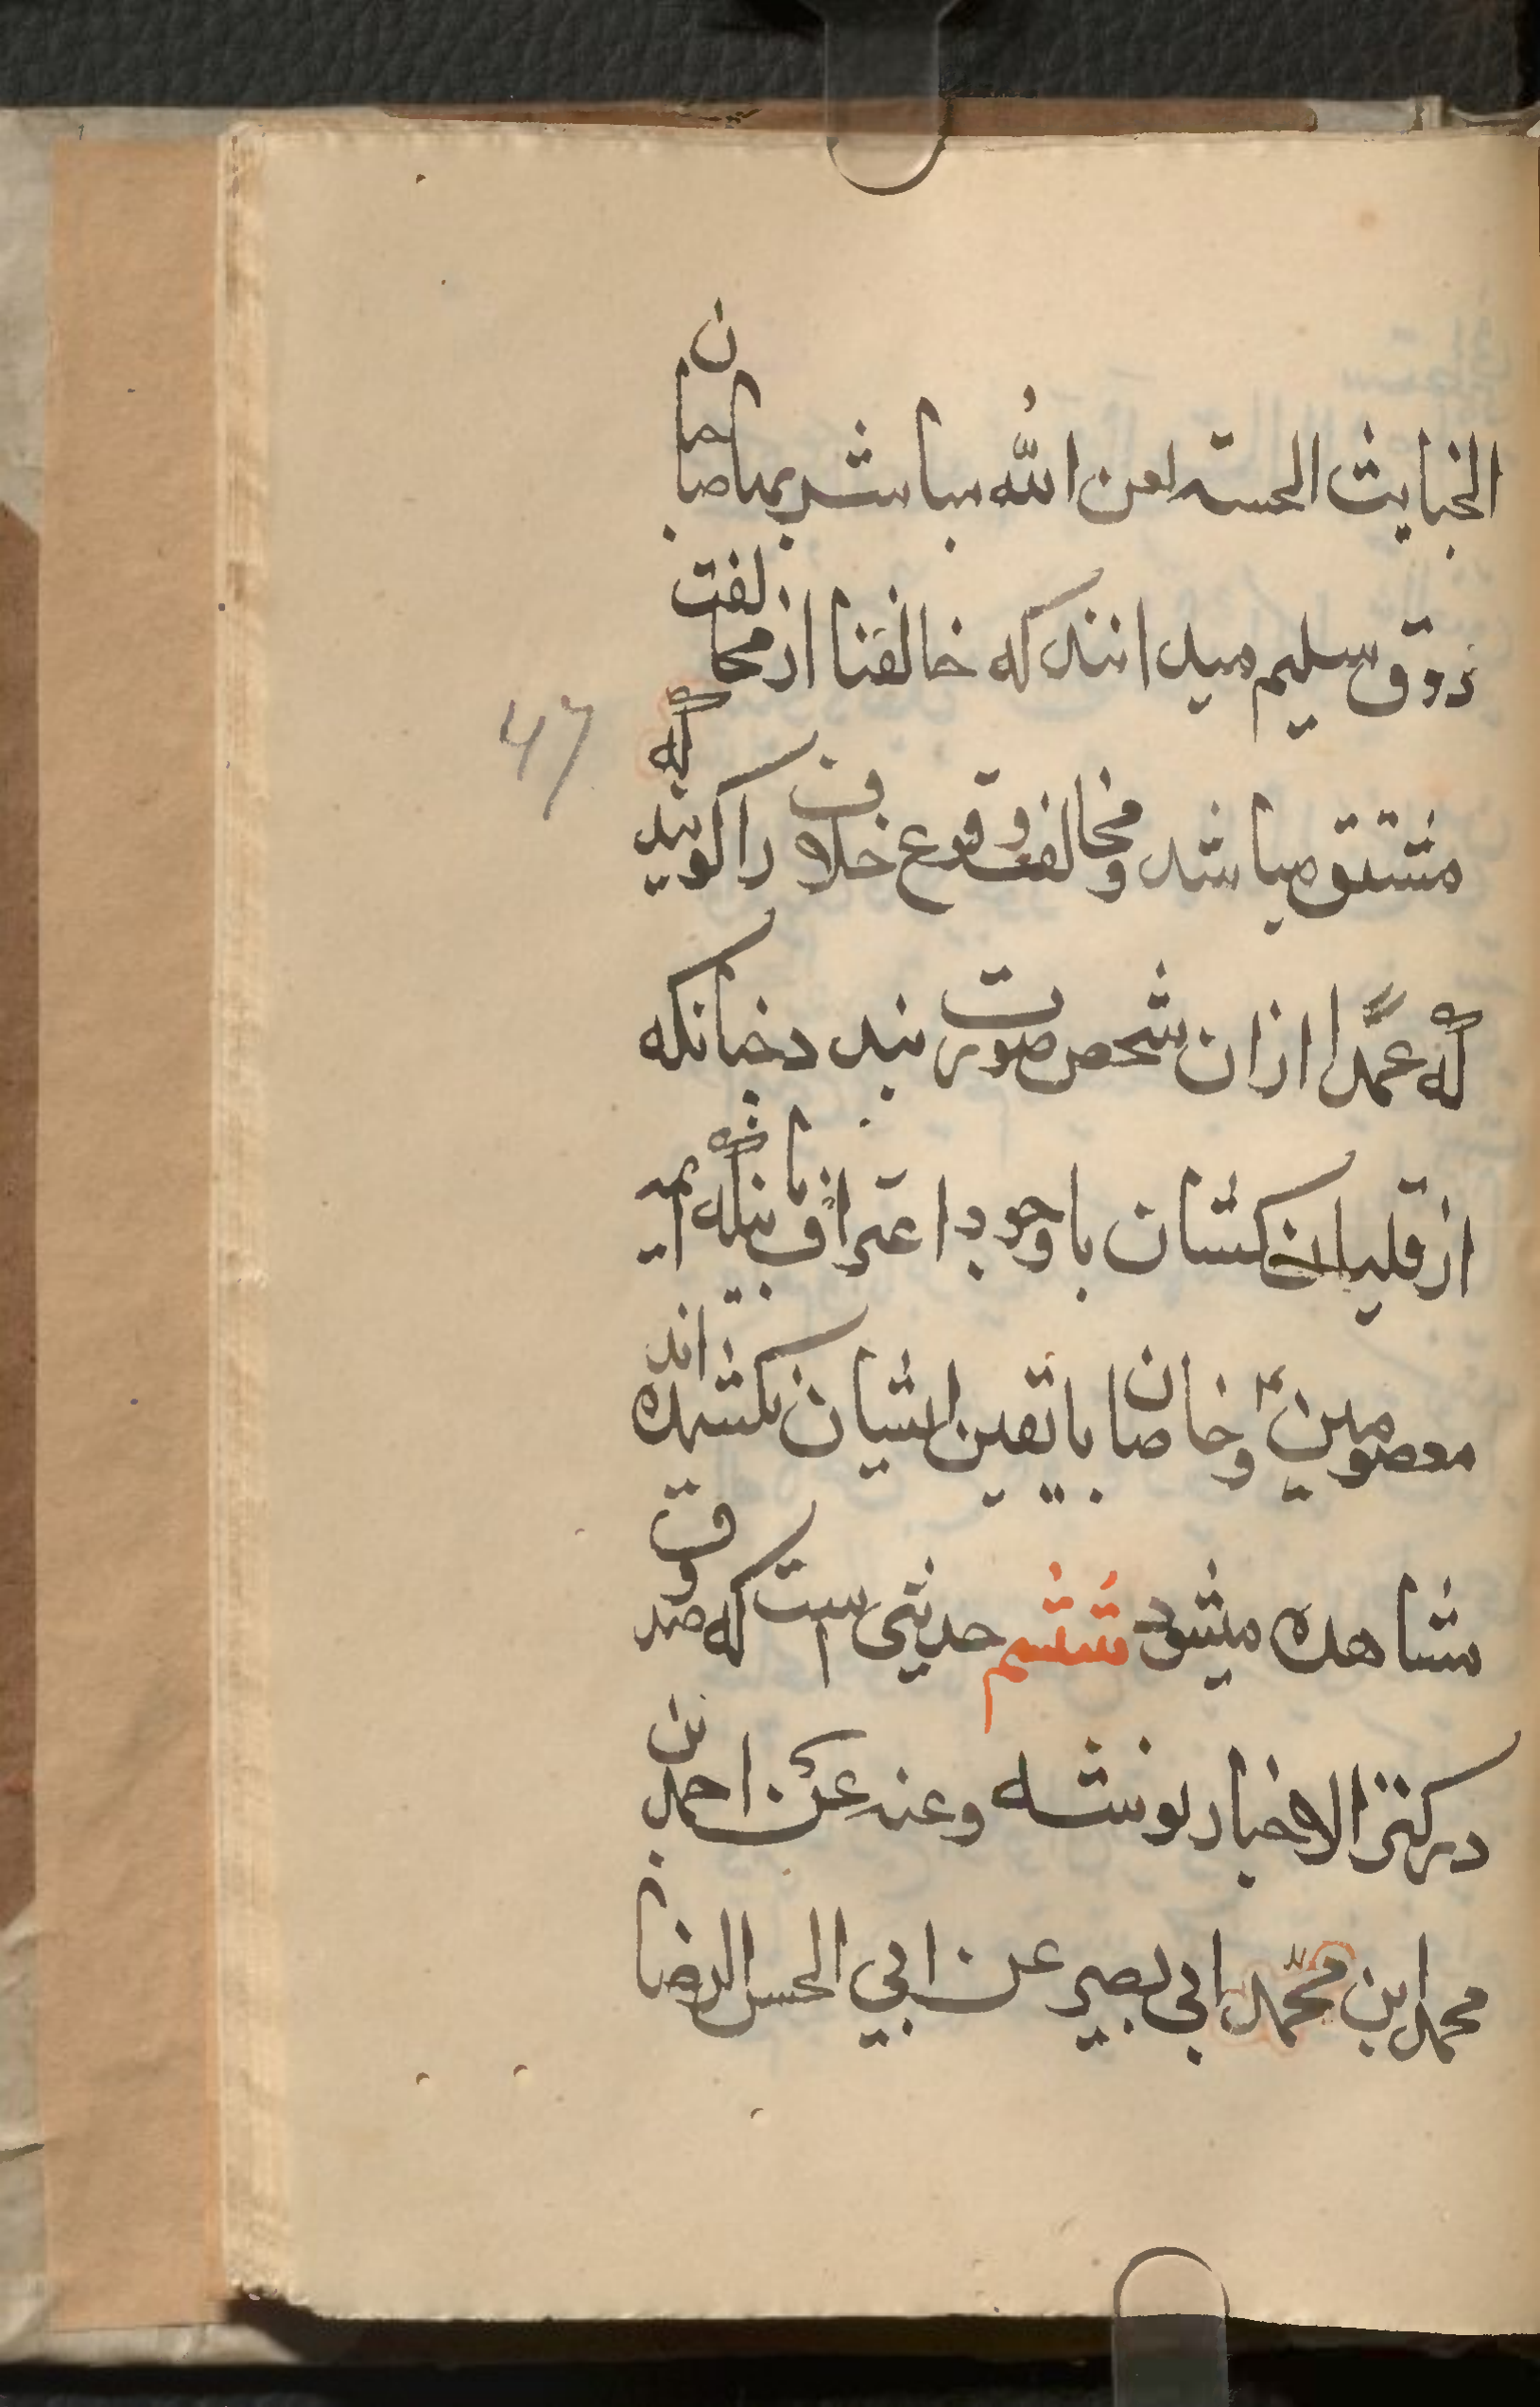 الخبایث الحسته لعن الله مباشر بها صاحبان
ذوق سلیم میدانند که خالفنا از مخالفت
مشتق میباشد و مخالفت وقوع خلاف را گویند که
که عمدًا ازان شخص صورت بندد خبانکه
از قلیان کشان با وجود اعتراف باینکه ائمه
معصومین ع و خاصان با یقین ایشان نکشیده اند
مشاهده میشود ششم حدیثی است که صدوق
در کنز الاخبار نوشته وعنه عن احمد بن
محمد ابن محمّد ابی بصیر عن ابي الحسن الرضا
47